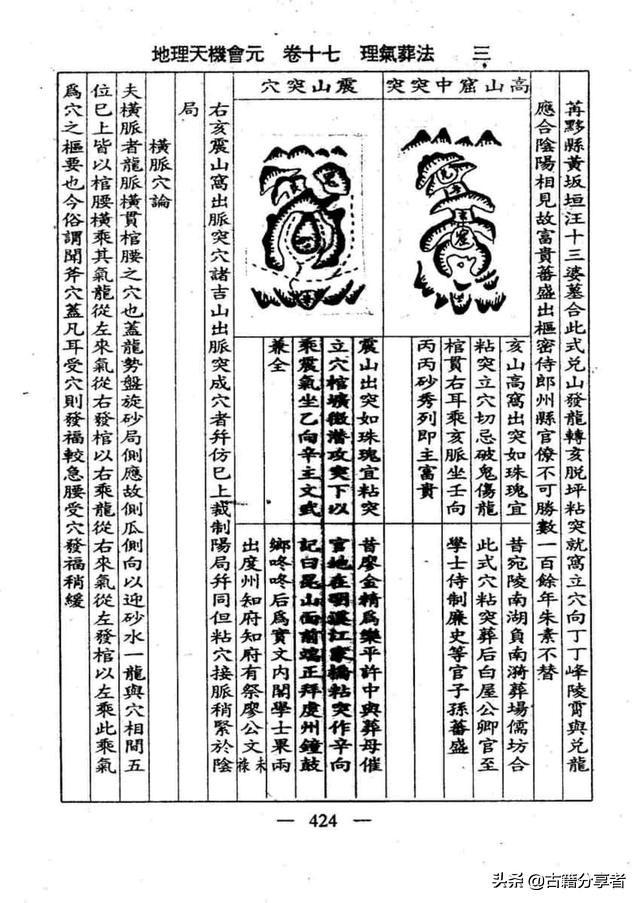 地理天機會元　卷十七　理氣葬法　三
苒黟縣黃坂垣汪十三婆墓合此式兌山發龍轉亥脫坪粘突就窩立穴向丁丁峰陵霄與兌龍
應合陰陽相見故富貴蕃盛出樞密侍郎州縣官僚不可勝數一百餘年朱素不替
高山窟中突突
亥山高窩出突如珠瑰宜
粘突立穴切忌破鬼傷龍
棺貫右耳乘亥脈坐壬向
丙丙砂秀列即主富貴
昔宛陵南湖負南漪葬場儒坊合
此式穴粘突葬后白屋公卿官至
學士侍制廉史等官子孫蕃盛
震山突穴
震山出突如珠瑰宜粘突
立穴棺壙微潛攻突下以
乘震氣坐乙向辛主文武
兼全
昔廖金精為樂平許中與葬母催
官地在明溪江家橋粘突作辛向
記曰昆山面前端正拜虔州鐘鼓
鄉咚咚后為實文內閣學士果兩
出度州知府知府有祭廖公文未祿
右亥震山窩出脈突穴諸吉山出脈突成穴者并仿巳上裁制陽局并同但粘穴接脈稍緊於陰
局
橫脈穴論
夫橫脈者龍脈橫貫棺腰之穴也蓋龍勢盤旋砂局側應故側瓜側向以迎砂水一龍與穴相間五
位巳上皆以棺腰橫乘其氣龍從左來氣從右發棺以右乘龍從右來氣從左發棺以左乘此乘氣
為穴之樞要也今俗謂開斧穴蓋凡耳受穴則發福較急腰受穴發福稍緩
— 424 —
头条 @古籍分享者